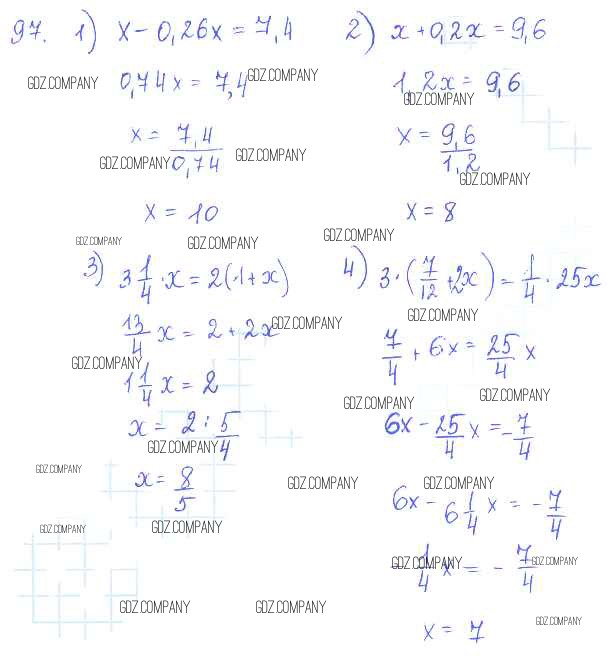 97. 1) x - 0,26x = 7,4
GDZ.COMPANY 0,74x = 7,4 GDZ.COMPANY
x = 7,4/0,74
GDZ.COMPANY GDZ.COMPANY
x = 10
GDZ.COMPANY GDZ.COMPANY
2) x + 0,2x = 9,6
1,2x = 9,6
GDZ.COMPANY
x = 9,6/1,2
GDZ.COMPANY
x = 8
GDZ.COMPANY
3) 3 1/4 · x = 2(1 + x)
13/4 x = 2 + 2x GDZ.COMPANY
GDZ.COMPANY
1 1/4 x = 2
x = 2 : 5/4
GDZ.COMPANY
GDZ.COMPANY x = 8/5 GDZ.COMPANY
GDZ.COMPANY GDZ.COMPANY
GDZ.COMPANY GDZ.COMPANY
4) 3 · (7/12 + 2x) = 1/4 · 25x
GDZ.COMPANY
7/4 + 6x = 25/4 x
GDZ.COMPANY GDZ.COMPANY
6x - 25/4 x = - 7/4
GDZ.COMPANY
6x - 6 1/4 x = - 7/4
- 1/4 x = - 7/4
GDZ.COMPANY GDZ.COMPANY
x = 7
GDZ.COMPANY